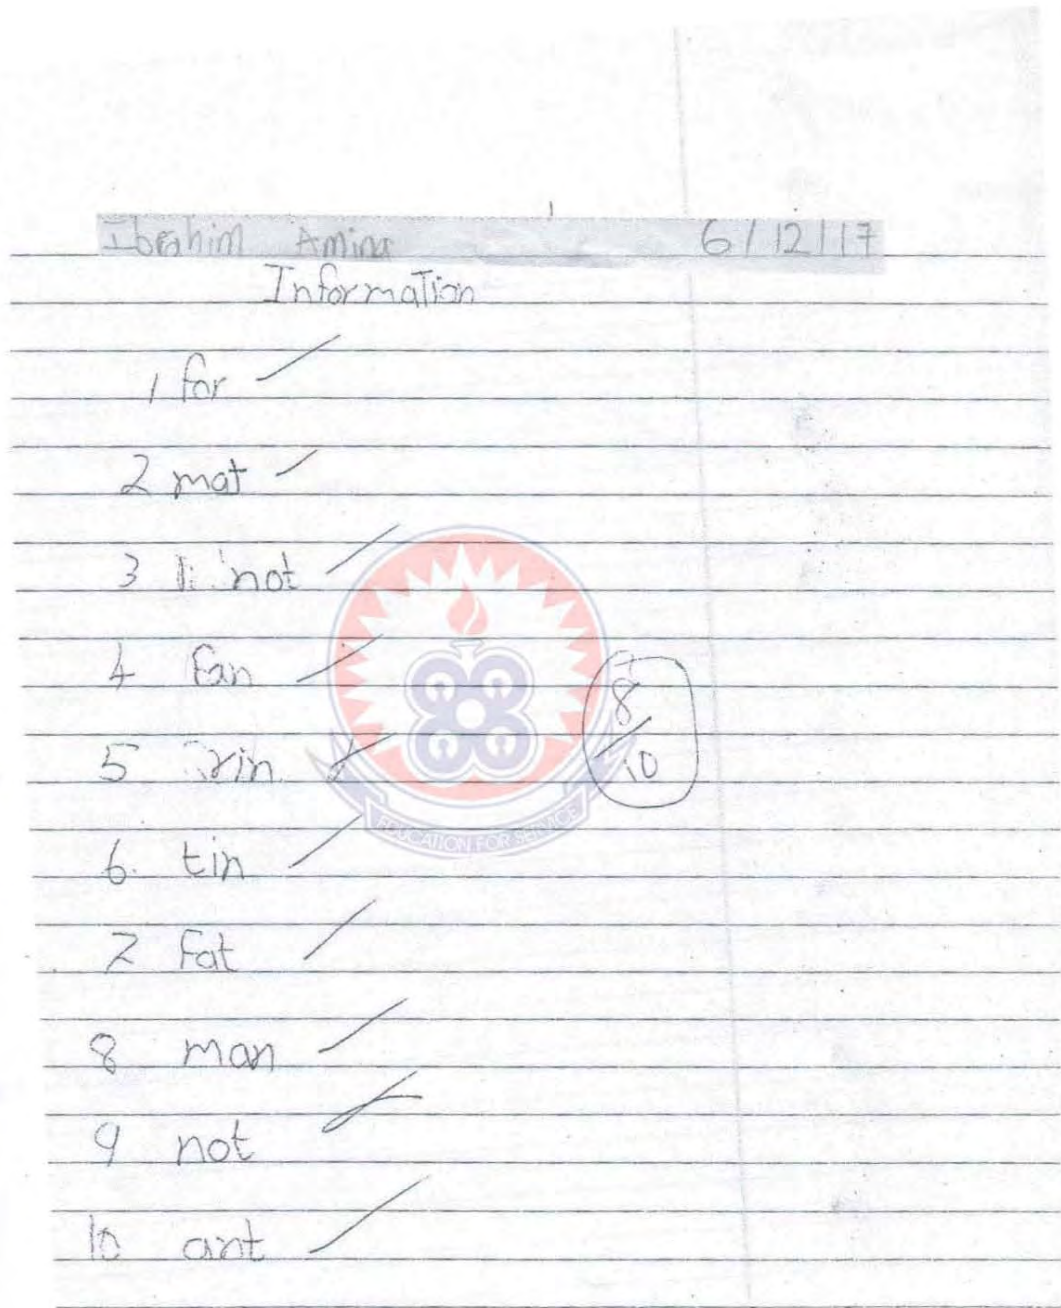 Ibrahim Amina 6/12/17
Information
1 for
2 mat
3 not
4 Fan
5 rin
6. tin
7 Fat
8 man
9 not
10 ant
8/10
EDUCATION FOR SERVICE